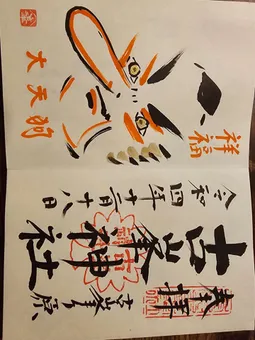 祥福
大天狗
奉拝
古峯神社
古峯ヶ原
令和四年十二月十八日